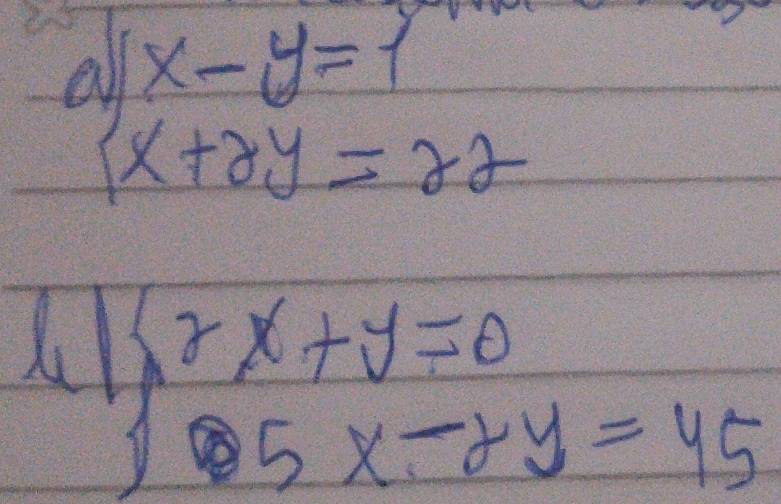 a) { x - y = 1
{ x + 2y = 22
b) { 2x + y = 0
5x - 2y = 45